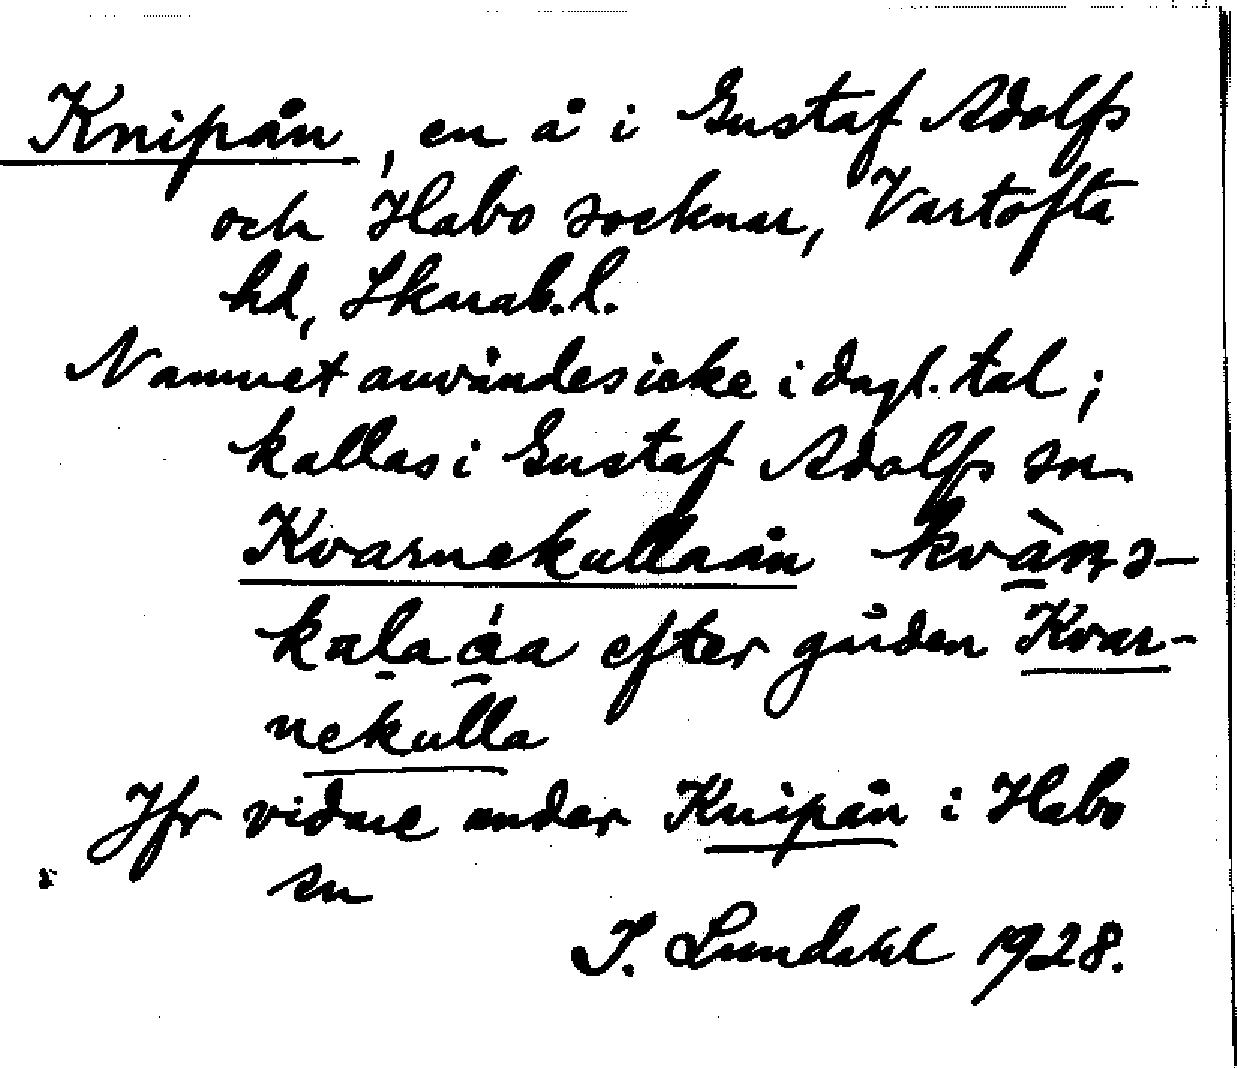 Knipån, en å i Gustaf Adolfs
och Habo socknar, Vartofta
hd, Skarab. l.
Namnet användes icke i dagl. tal;
kallas i Gustaf Adolfs sn
Kvarnekullaån
efter gården Kvar-
nekulla
Jfr vidare under Knipån i Habo
sn
I. Lundahl 1928.